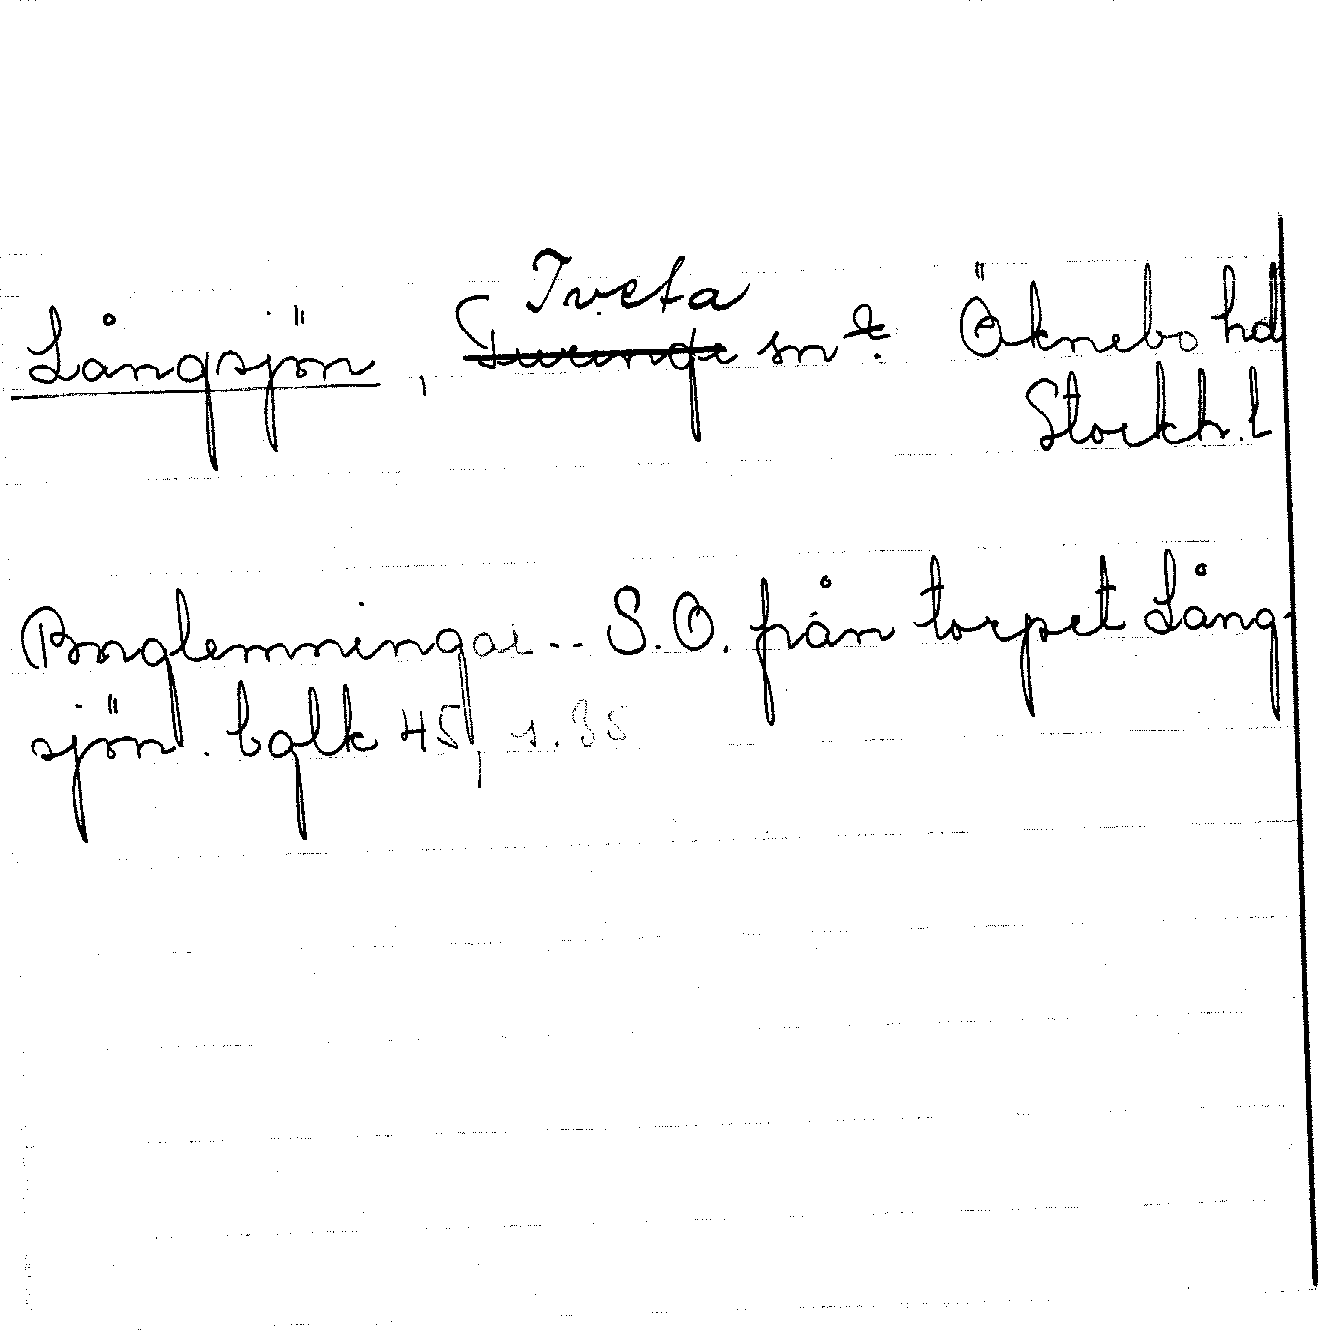 Långsjön, Tveta sn. Öknebo hd
Stockh. l
Ringlemningar -- S.O. från torpet Lång-
sjön. bglk 45, s. 35